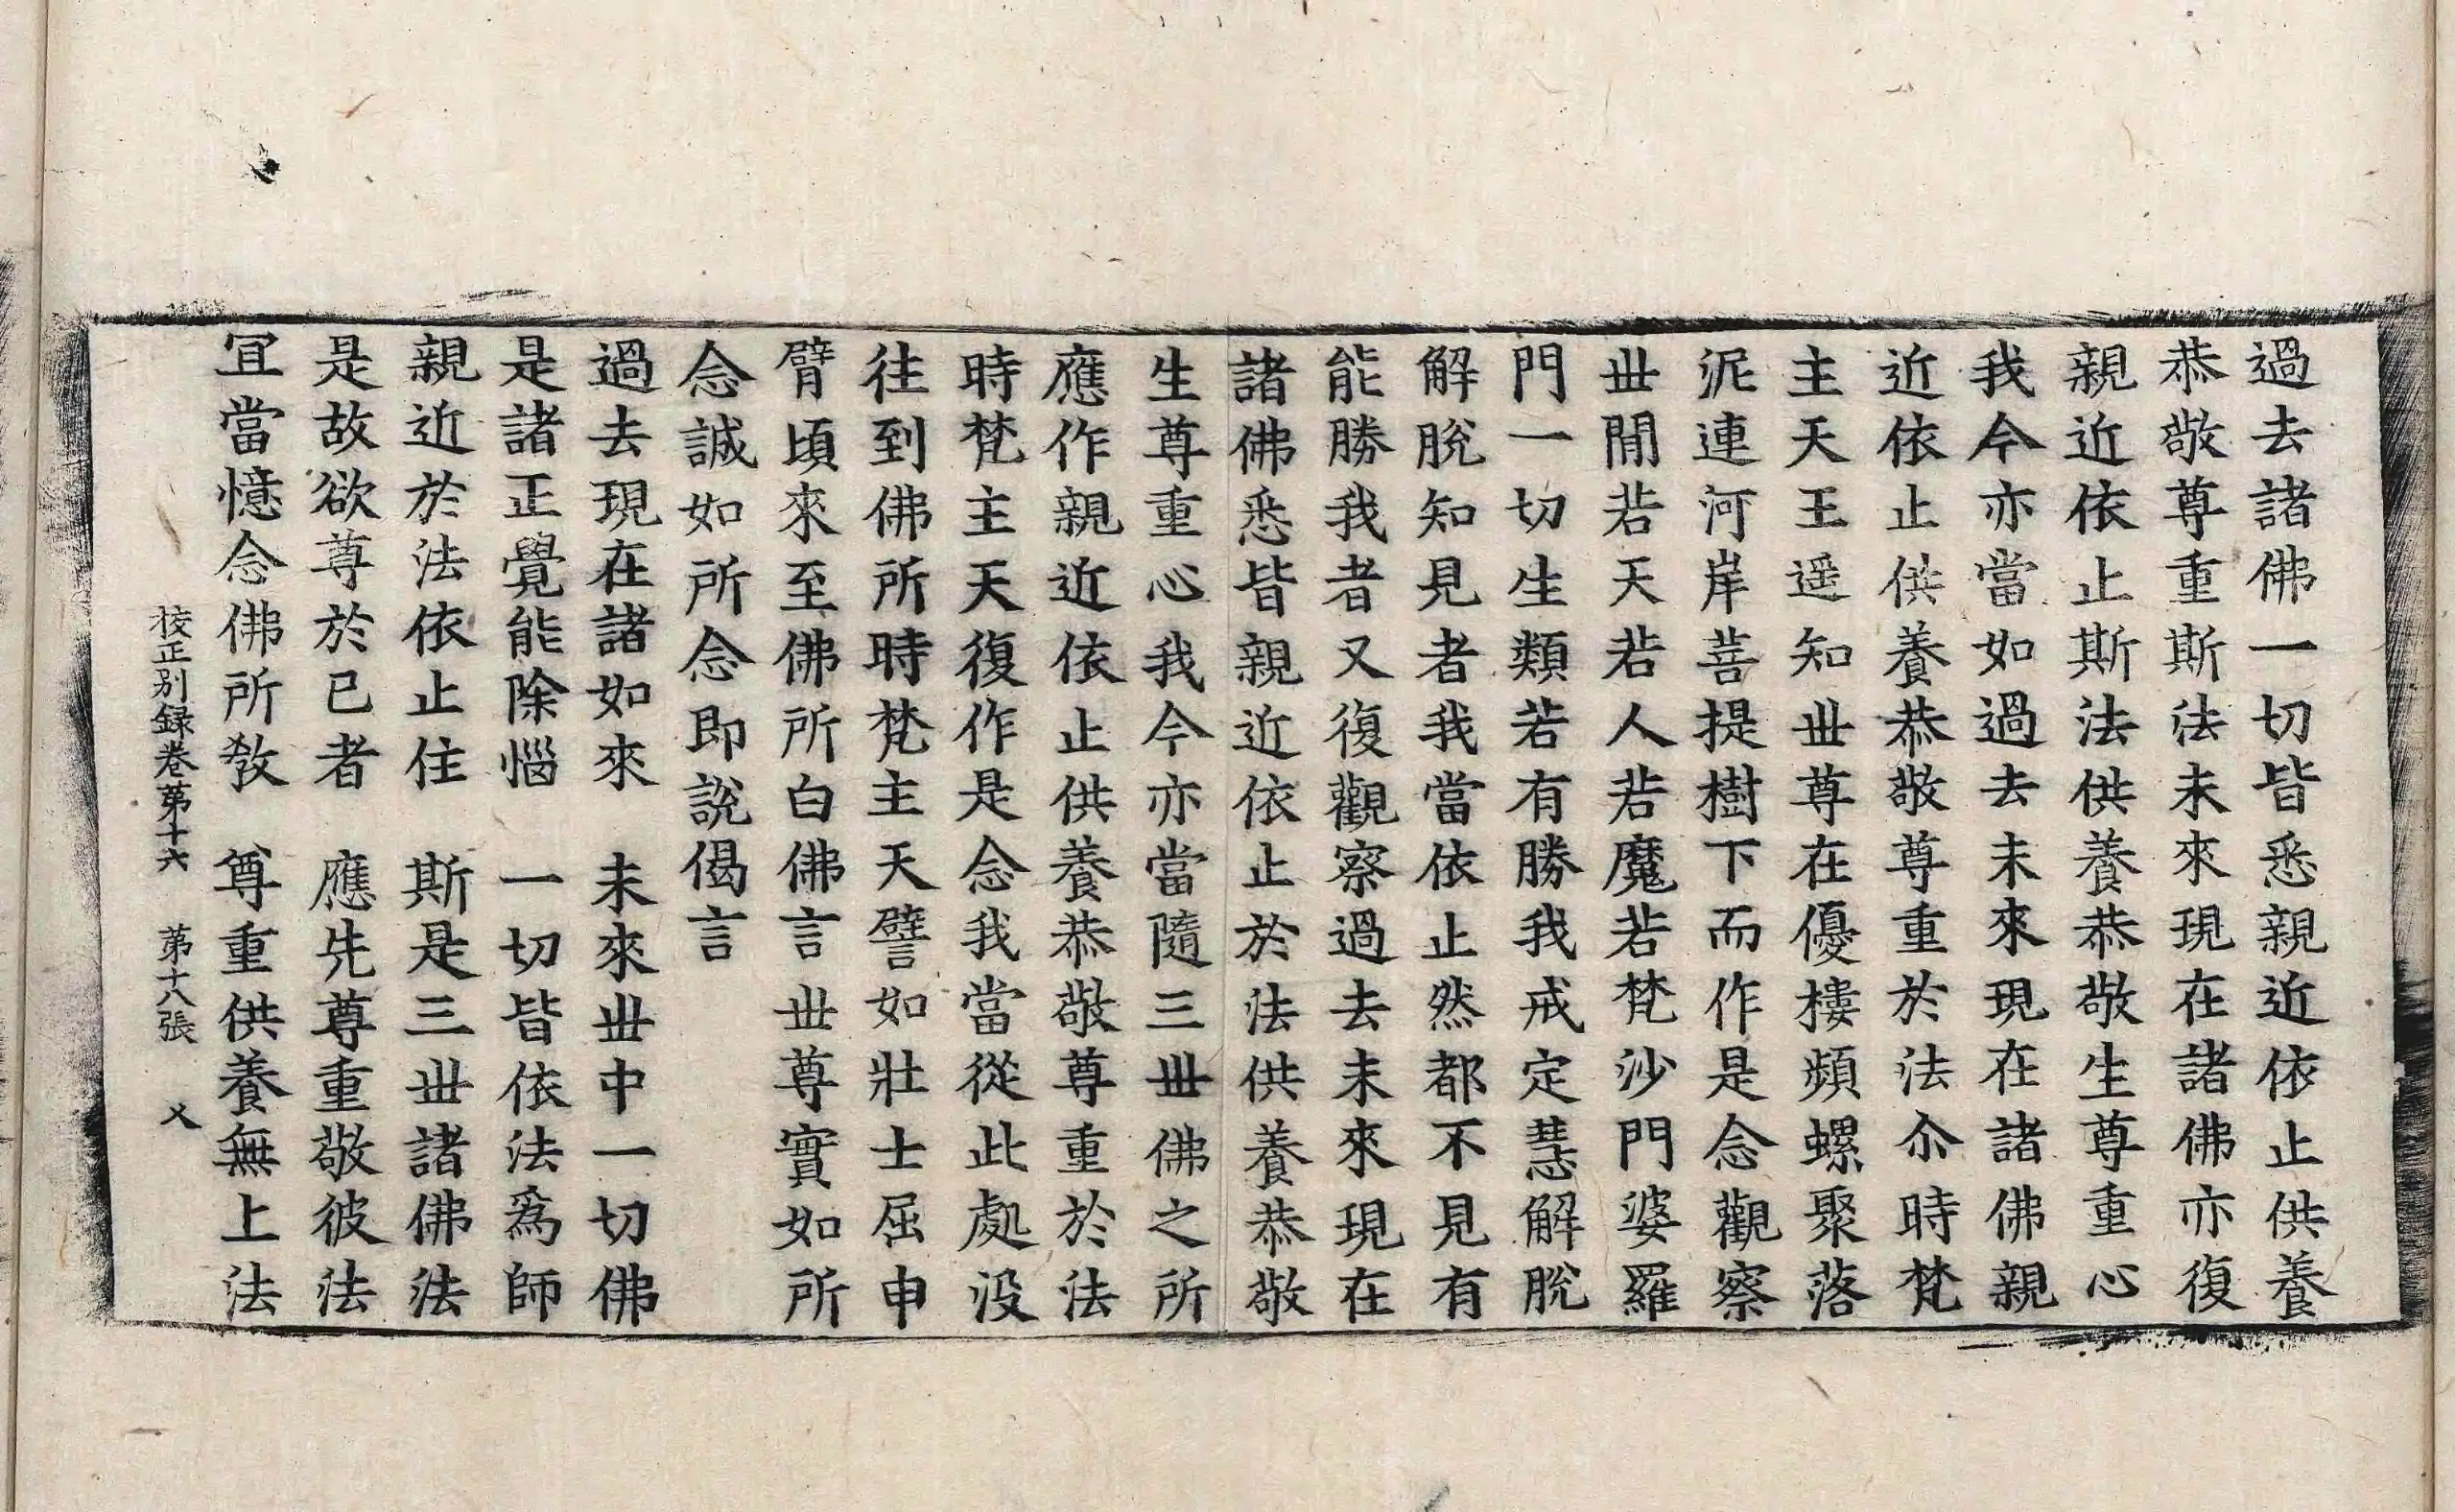 過去諸佛一切皆悉親近依止供養
恭敬尊重斯法未來現在諸佛亦復
親近依止斯法供養恭敬生尊重心
我今亦當如過去未來現在諸佛親
近依止供養恭敬尊重於法尒時梵
主天王遥知丗尊在優樓頻螺聚落
泥連河岸菩提樹下而作是念觀察
丗閒若天若人若魔若梵沙門婆羅
門一切生類若有勝我戒定慧解脫
解脫知見者我當依止然都不見有
能勝我者又復觀察過去未來現在
諸佛悉皆親近依止於法供養恭敬
生尊重心我今亦當隨三丗佛之所
應作親近依止供養恭敬尊重於法
時梵主天復作是念我當從此處没
往到佛所時梵主天譬如壯士屈申
臂頃來至佛所白佛言丗尊實如所
念誠如所念即說偈言
過去現在諸如來　未來丗中一切佛
是諸正覺能除惱　一切皆依法爲師
親近於法依止住　斯是三丗諸佛法
是故欲尊於已者　應先尊重敬彼法
冝當憶念佛所敎　尊重供養無上法
校正別録卷第十六　第十八張　乂